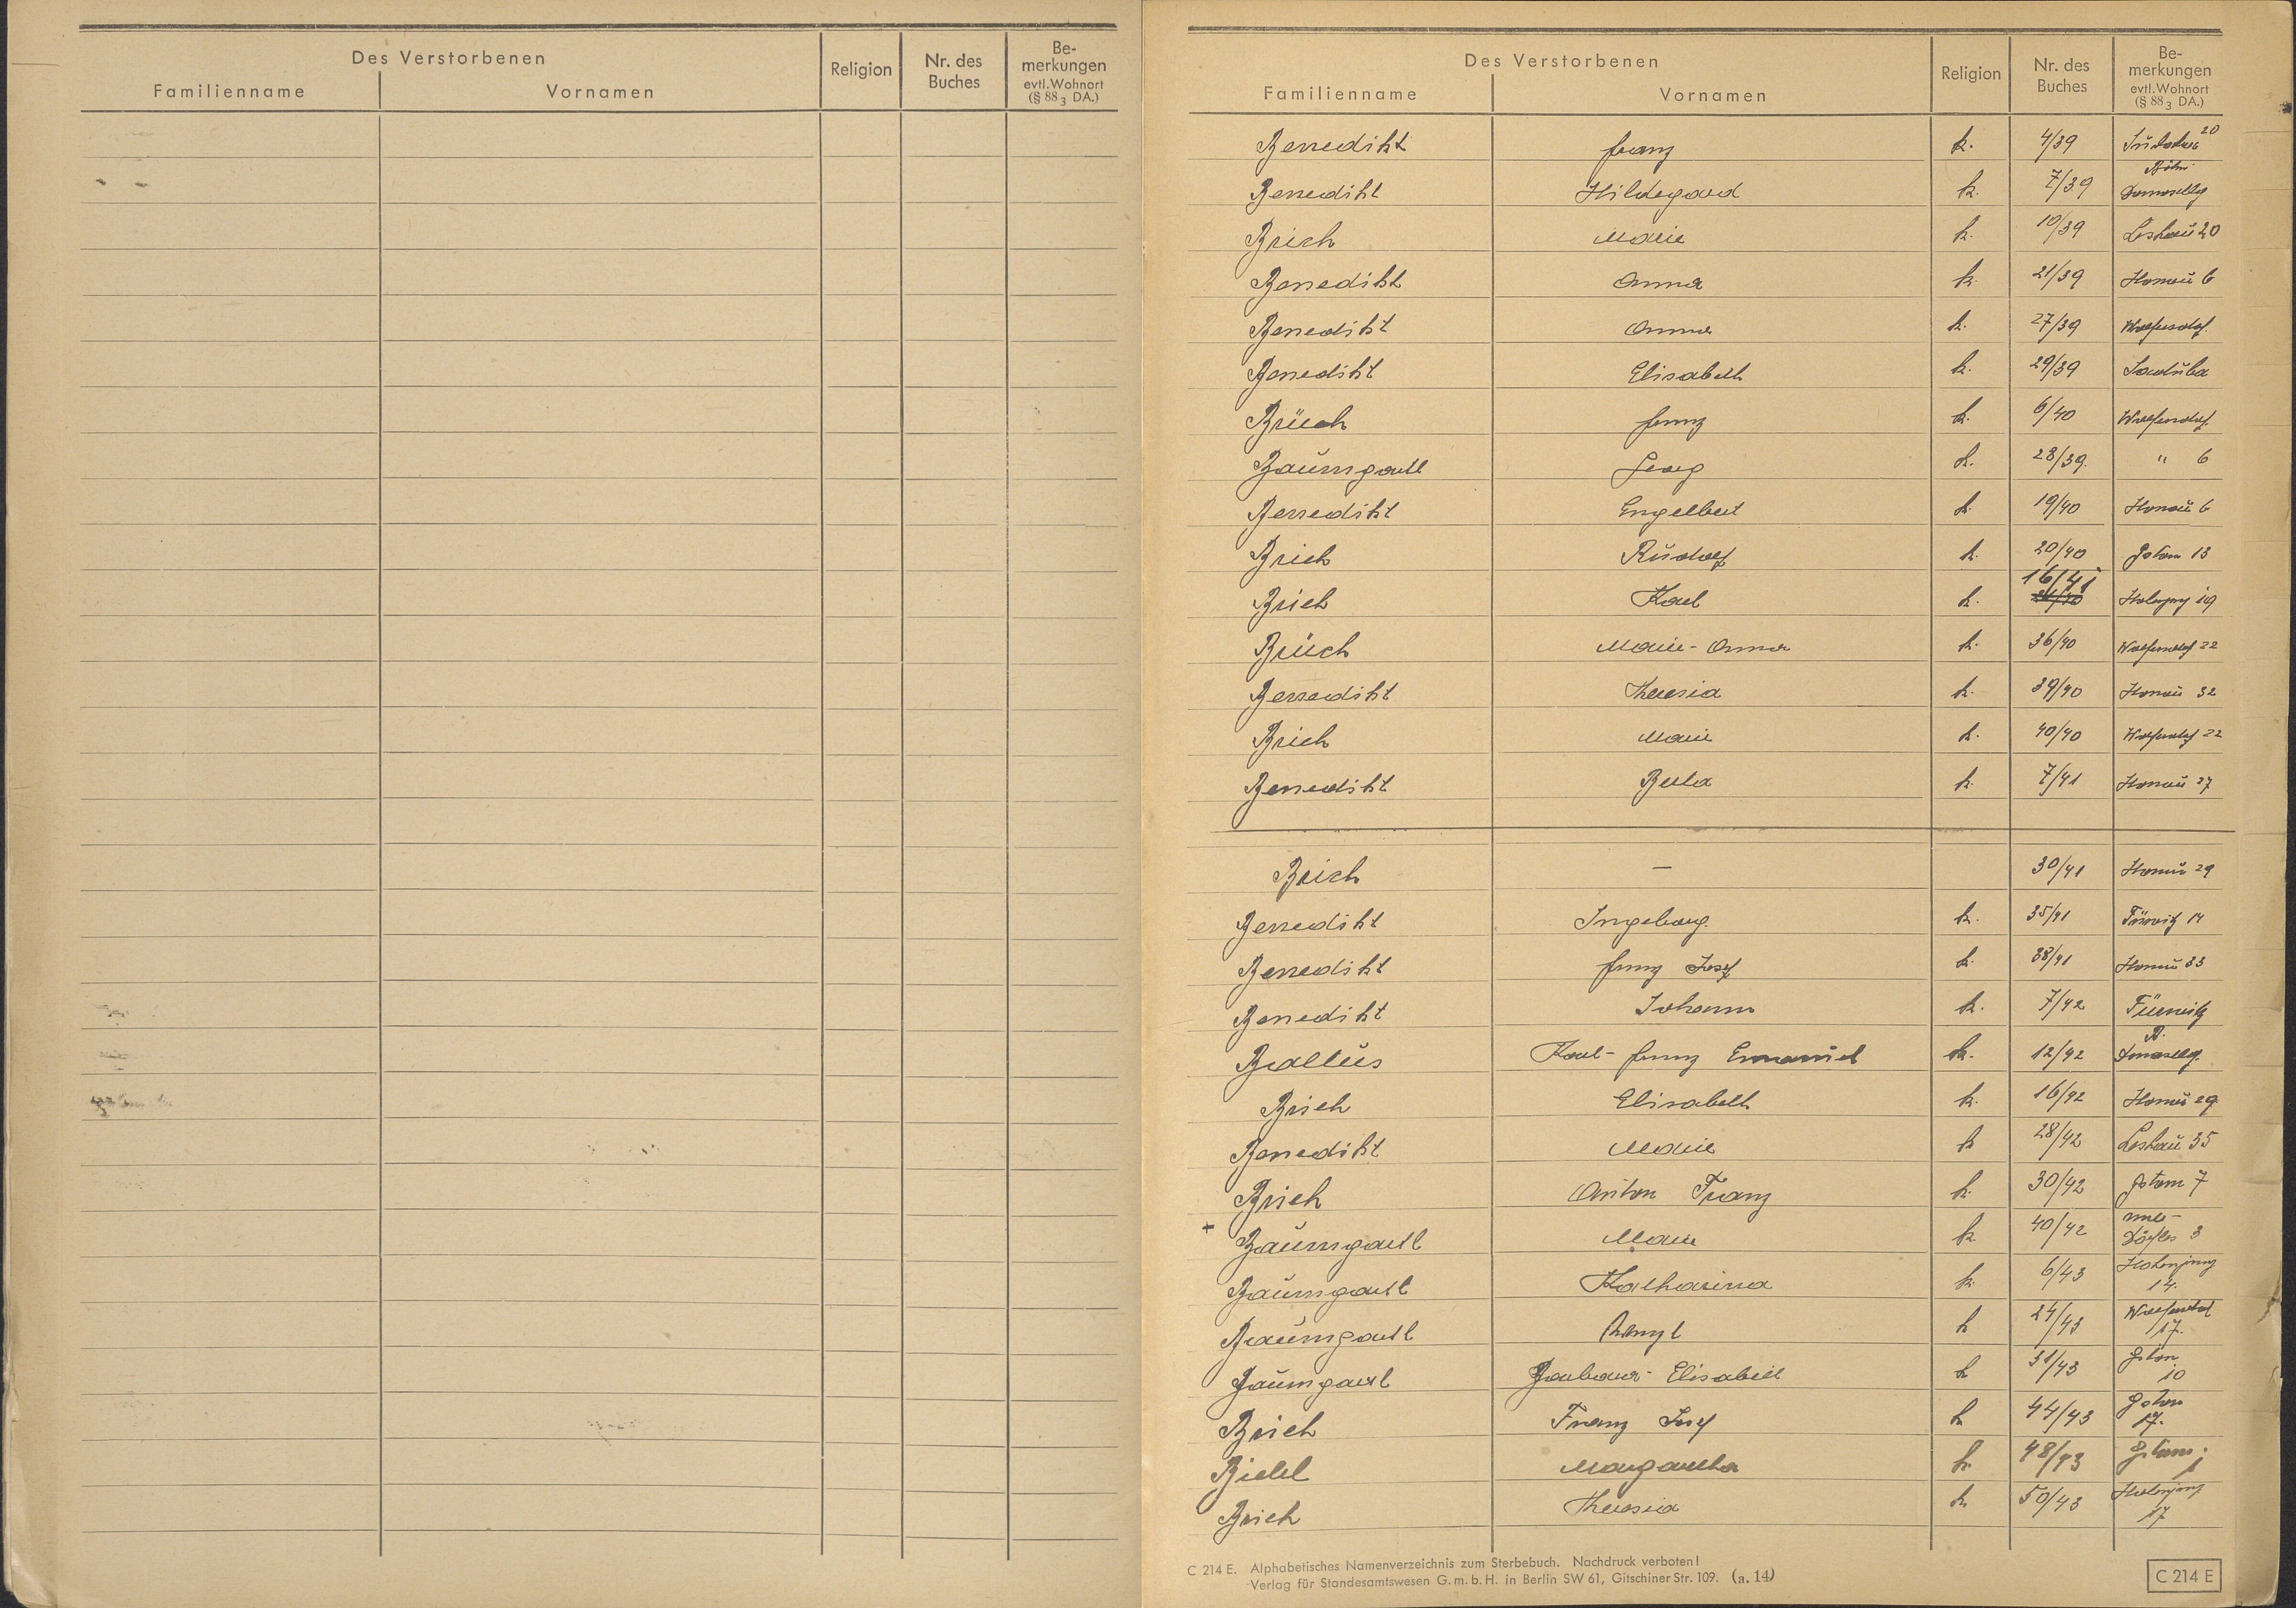 Des Verstorbenen
Familienname Vornamen Religion Nr. des Buches Be-merkungen evtl. Wohnort (§ 88 3 DA.)
Des Verstorbenen
Familienname Vornamen Religion Nr. des Buches Be-merkungen evtl. Wohnort (§ 88 3 DA.)
Benedikt Franz k. 4/39 20
Benedikt Hildegard k. 7/39
Brich Marie k. 10/39 Leskau 20
Benedikt Anna k. 21/39 Honau 6
Benedikt Anna k. 27/39
Benedikt Elisabeth k. 29/39
Brüch Franz k. 6/40
Baumgartl Georg k. 28/39. " 6
Benedikt Engelbert k. 19/40 Honau 6
Brich Rudolf k. 20/40 13
Brich Karl k. 16/41 19
Brüch Marie-Anna k. 36/40 22
Benedikt Theresia k. 39/40 Honau 32
Brich Marie k. 40/40 22
Benedikt Berta k. 7/41 Honau 27
Brich — 30/41 Honau 29
Benedikt Ingeborg k. 35/41 14
Benedikt Franz Josef k. 38/41 Honau 33
Benedikt Johann k. 7/42
Karl-Franz Emanuel k. 12/42
Brich Elisabeth k. 16/42 Honau 29
Benedikt Marie k 28/42 Leskau 35
Brich Anton Franz k. 30/42 7
+ Baumgartl Marie k. 40/42 3
Baumgartl Katharina k. 6/43 14.
Baumgartl k 24/43 17.
Baumgartl Barbara-Elisabeth k 31/43 10
Brich Franz Josef k 44/43 17.
Margaretha k 48/43
Brich Theresia k 50/43 17
C 214 E. Alphabetisches Namenverzeichnis zum Sterbebuch. Nachdruck verboten!
Verlag für Standesamtswesen G.m.b.H. in Berlin SW 61, Gitschiner Str. 109. (a. 14)
C 214 E